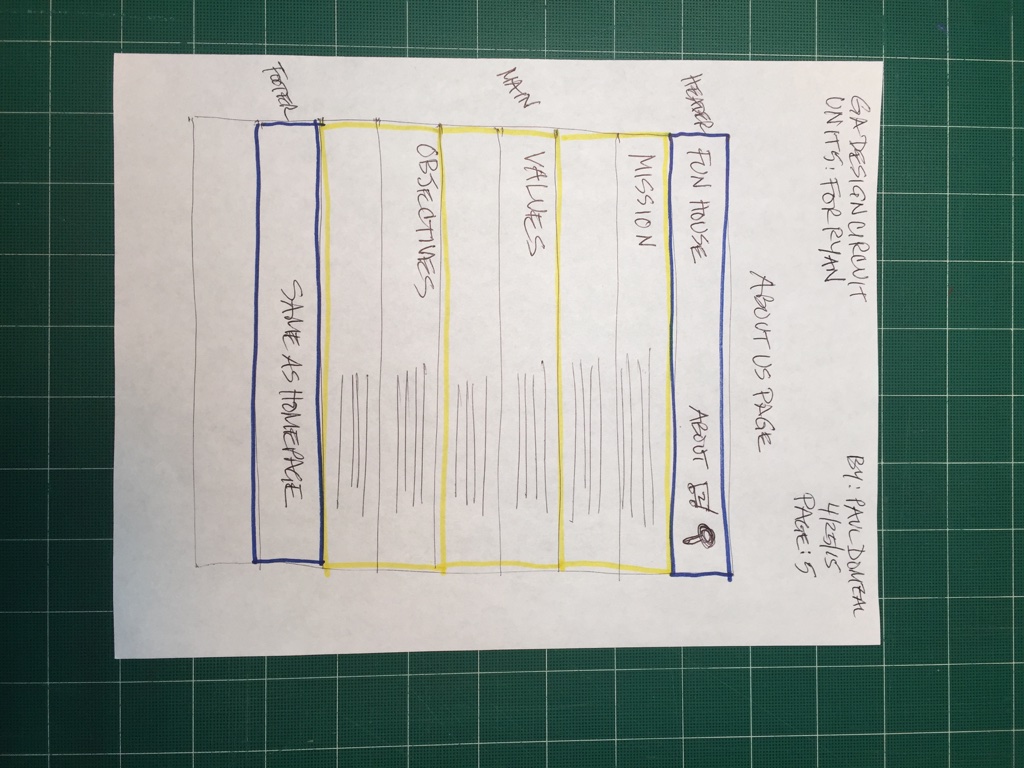 GA DESIGN CIRCUIT
UNITS: FOR RYAN
BY: PAUL DOMEAL
4/25/15
PAGE: 5
ABOUT US PAGE
HEADER
FUN HOUSE
ABOUT
MAIN
MISSION
VALUES
OBJECTIVES
FOOTER
SAME AS HOMEPAGE